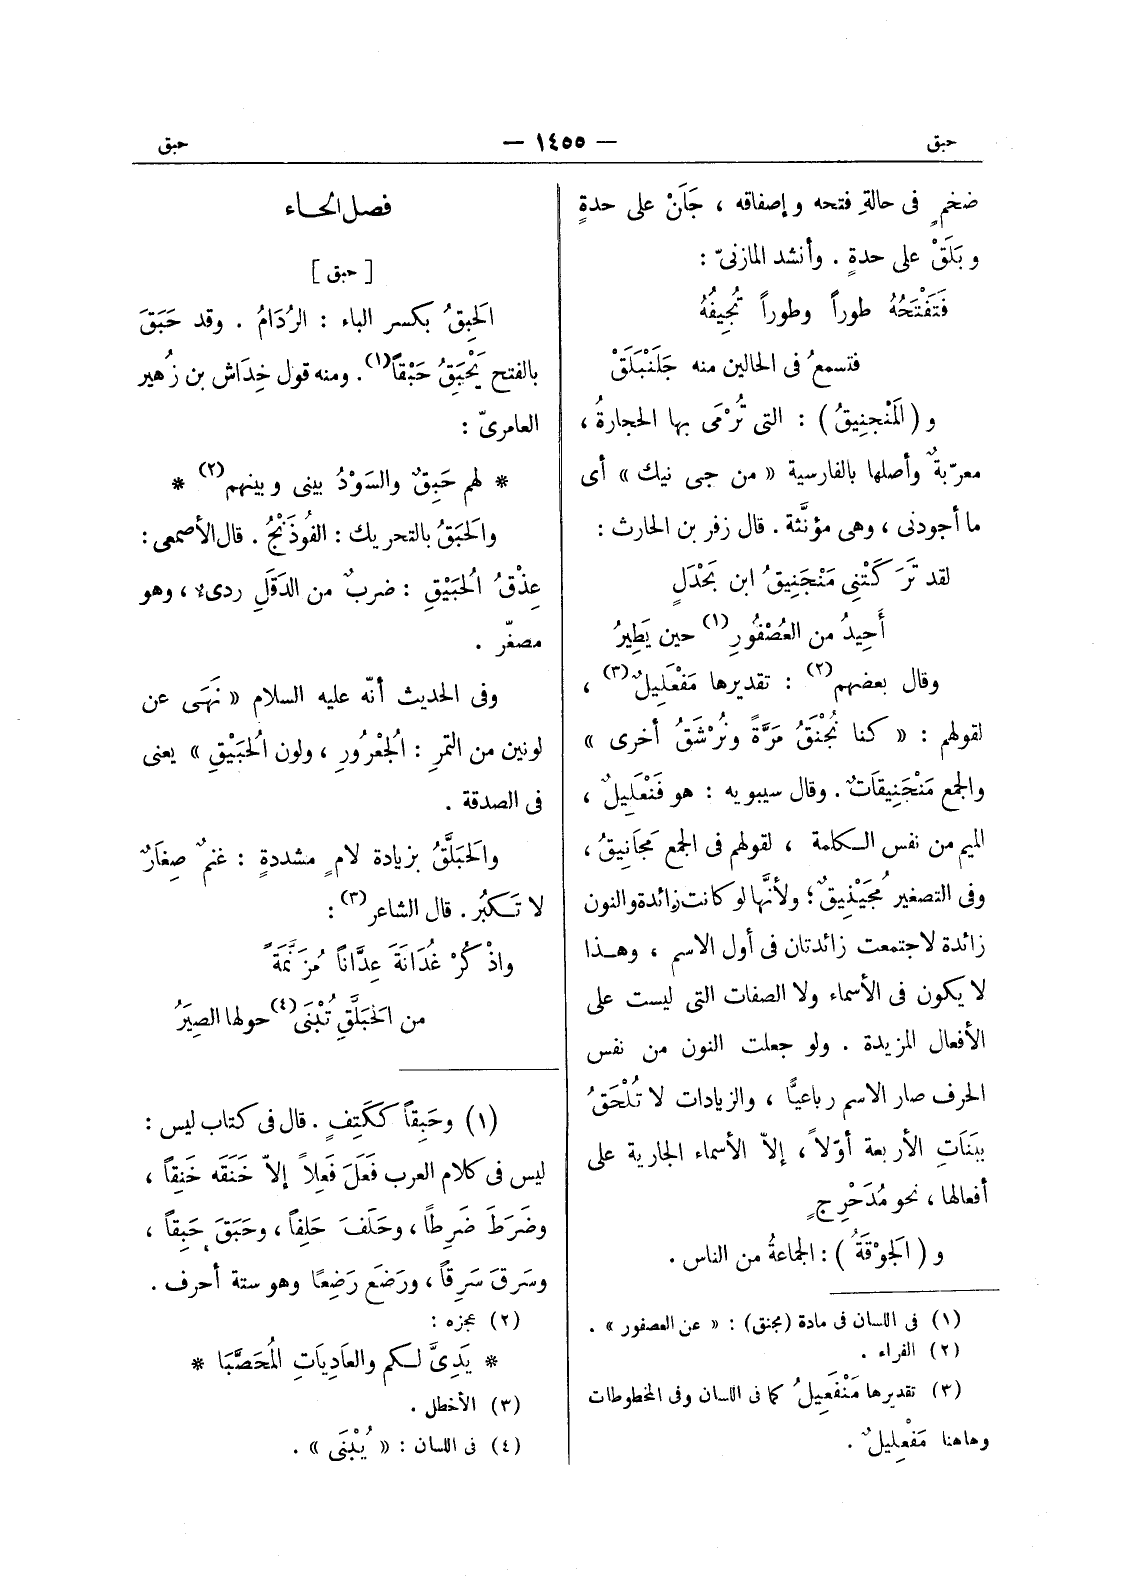 حبق — ١٤٥٥ — حبق
ضخمٍ فى حالةِ فتحه وإصفاقه ، جَلَنْ على حدةٍ
وبَلَقْ على حدةٍ . وأنشد المازنىّ :
فَتَفْتَحُهُ طوراً وطوراً تُجِيفُهُ
فتسمعُ فى الحالين منه جَلَنْبَلَقْ
و (المَنْجنِيقُ) : التى تُرْمَى بها الحجارةُ ،
معرّبةٌ وأصلها بالفارسية « من جى نيك » أى
ما أجودنى ، وهى مؤنَّثة . قال زفر بن الحارث :
لقد تَرَكَتْنِى مَنْجَنِيقُ ابن بَحْدَلٍ
أَحِيدُ من العُصْفُورِ(١) حين يَطِيرُ
وقال بعضهم(٢) : تقديرها مَفْعَلِيلٌ(٣) ،
لقولهم : « كنا نُجْنَقُ مَرَّةً ونُرْشَقُ أخرى »
والجمع مَنْجَنِيقَاتٌ . وقال سيبويه : هو فَنْعَلِيلٌ ،
الميم من نفس الكلمة ، لقولهم فى الجمع مَجَانِيقُ ،
وفى التصغير مُجَيْنِيقٌ ؛ ولأنَّها لو كانت زائدة والنون
زائدة لاجتمعت زائدتان فى أول الاسم ، وهذا
لا يكون فى الأسماء ولا الصفات التى ليست على
الأفعال المزيدة . ولو جعلت النون من نفس
الحرف صار الاسم رباعيًّا ، والزيادات لا تُلْحَقُ
ببَنَاتِ الأربعة أوّلاً ، إلاّ الأسماء الجارية على
أفعالها ، نحو مُدَحْرِجٍ
و (الجَوْقَةُ) : الجماعةُ من الناس .
(١) فى اللسان فى مادة (مجنق) : « عن العصفور » .
(٢) الفراء .
(٣) تقديرها مَنْفَعِيلُ كما فى اللسان وفى المخطوطات
وهاهنا مَفْعلِيلٌ .
فصل الحاء
[ حبق ]
الحَبِقُ بكسر الباء : الرُدَامُ . وقد حَبَقَ
بالفتح يَحْبَقُ حَبْقاً(١) . ومنه قول خِدَاش بن زُهير
العامرىّ :
* لهم حَبِقٌ والسَوْدُ بينى وبينهم(٢) *
والحَبَقُ بالتحريك : الفُوذَنْجُ . قال الأصمعى :
عِذْقُ الحُبَيْقِ : ضربٌ من الدَقَلِ ردىء ، وهو
مصغّر .
وفى الحديث أنّه عليه السلام « نَهَى عن
لونين من التمرِ : الجُعْرُورِ ، ولون الحُبَيْقِ » يعنى
فى الصدقة .
والحَبَلَّقُ بزيادة لامٍ مشددةٍ : غنمٌ صِغَارٌ
لا تَكبُر . قال الشاعر(٣) :
واذْكُرْ غُدَانَةَ عِدَّاناً مُزَنَّمَةً
من الحَبَلَّقِ تُبْنَى(٤) حولها الصِيَرُ
(١) وحَبِقاً ككَتِفٍ . قال فى كتاب ليس :
ليس فى كلام العرب فَعَلَ فَعِلاً إلاّ خَنَقَه خَنِقاً ،
وضَرَطَ ضَرِطًا ، وحَلَفَ حَلِفاً ، وحَبَقَ حَبِقاً ،
وسَرقَ سَرِقاً ، ورَضَع رَضِعًا وهو ستة أحرف .
(٢) عجزه :
* يَدِىَّ لكم والعَادِيَاتِ المُحَصَّبَا *
(٣) الأخطل .
(٤) فى اللسان : « يُبْنَى » .